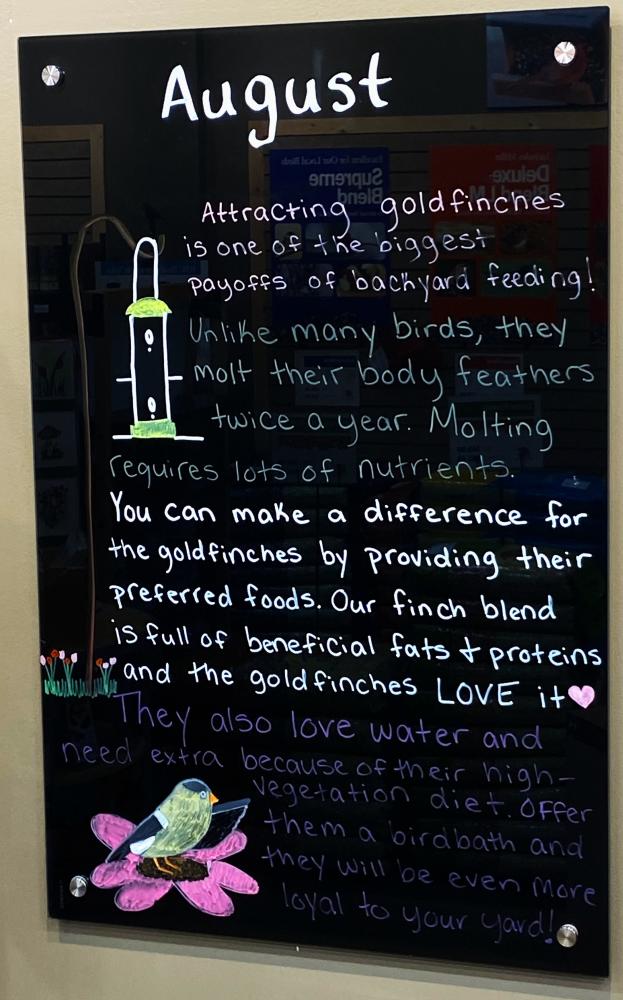 August
Attracting goldfinches
is one of the biggest
payoffs of backyard feeding!
Unlike many birds, they
molt their body feathers
twice a year. Molting
requires lots of nutrients.
You can make a difference for
the goldfinches by providing their
preferred foods. Our finch blend
is full of beneficial fats + proteins
and the goldfinches LOVE it
They also love water and
need extra because of their high-
vegetation diet. Offer
them a birdbath and
they will be even more
loyal to your yard!
Excellent for Our Local Birds
Supreme
Blend
Deluxe